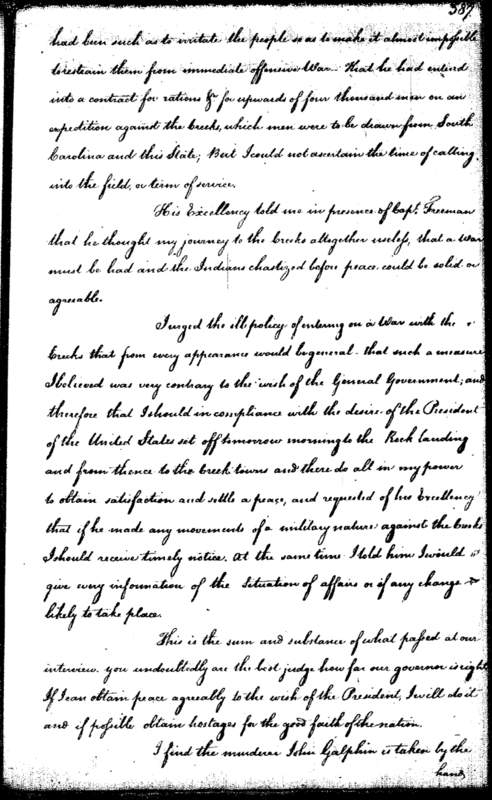 387
had been such as to irritate the people so as to make it almost impossible
to restrain them from immediate offensive War. That he had entered
into a contract for rations &c for upwards of four thousand men on an
expedition against the Creeks, which men were to be drawn from South
Carolina and this State; But I could not ascertain the time of calling
into the field, or term of service.
His Excellency told me in presence of Capt. Freeman
that he thought my journey to the Creeks altogether useless, that a War
must be had and the Indians chastized before peace could be solid or
agreable.
I urged the ill policy of entering on a War with the
Creeks that from every appearance would be general - that such a measure
I believed was very contrary to the wish of the General Government; and
therefore that I should in compliance with the desire of the President
of the United States set off tomorrow morning to the Rock landing
and from thence to the Creek towns and there do all in my power
to obtain satisfaction and settle a peace, and requested of his Excellency
that if he made any movements of a military nature against the Creeks
I should receive timely notice. At the same time I told him I would
give every information of the Situation of affairs or if any change
likely to take place.
This is the sum and substance of what passed at our
interview. you undoubtedly are the best judge how far our governor is right,
If I can obtain peace agreably to the wish of the President, I will do it
and if possible obtain hostages for the good faith of the nation.
I find the murderer John Galphin is taken by the
hand